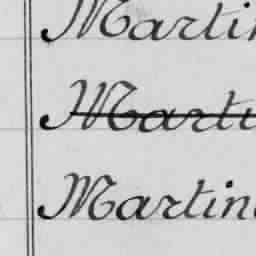 Martin
Marti
Martin